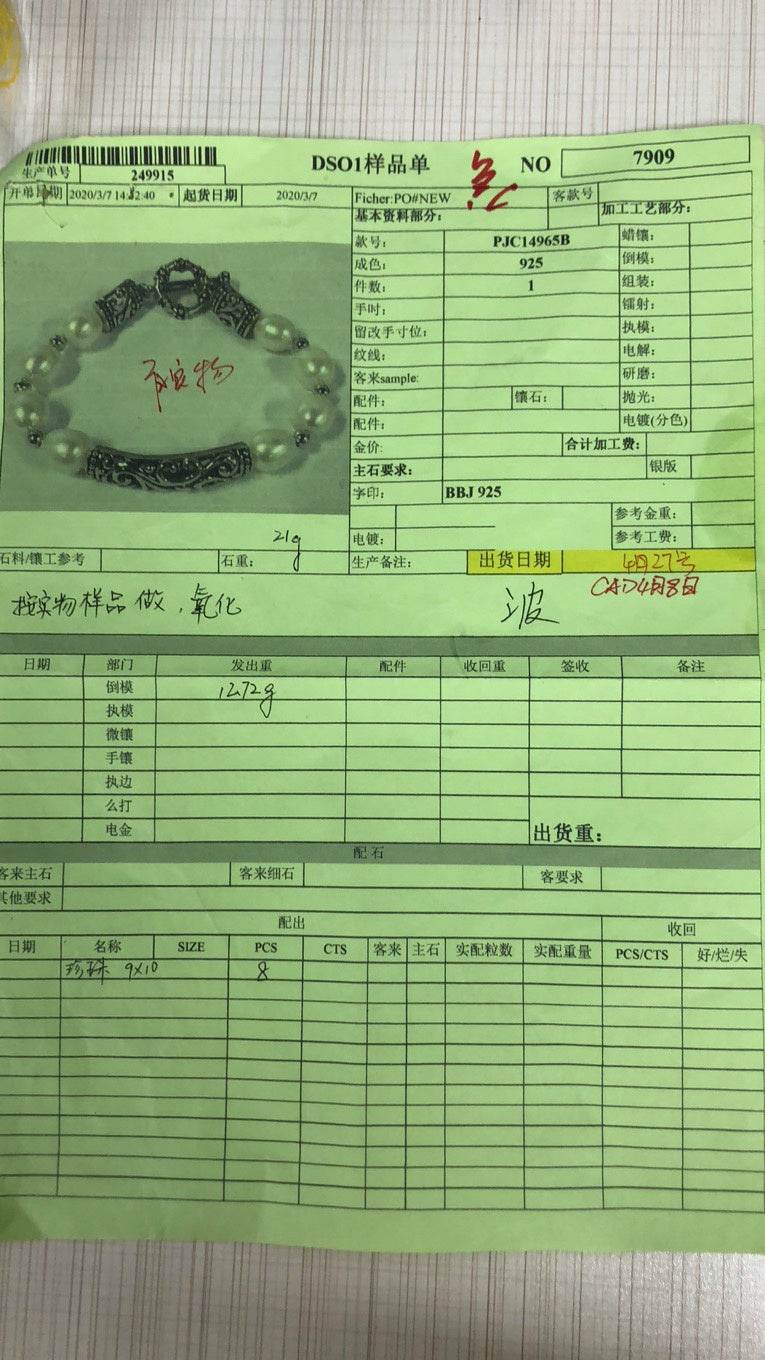 生产单号 249915 DSO1样品单 NO 7909
开单日期 2020/3/7 14:12:40 起货日期 2020/3/7 Ficher:PO#NEW 客款号
基本资料部分: 加工工艺部分:
款号: PJC14965B 蜡镶:
成色: 925 倒模:
件数: 1 组装:
手吋: 镭射:
留改手寸位: 执模:
纹线: 电解:
客来sample: 研磨:
有实物
配件: 镶石: 抛光:
配件: 电镀(分色)
金价: 合计加工费:
主石要求: 银版
字印: BBJ 925
参考金重:
电镀: 参考工费:
石料/镶工参考 石重: 21g 生产备注: 出货日期 4月27号
CAD4月8日
按实物样品做,氧化 波
日期 部门 发出重 配件 收回重 签收 备注
倒模 12.72g
执模
微镶
手镶
执边
么打
电金 出货重:
配 石
客来主石 客来细石 客要求
其他要求
配出 收回
日期 名称 SIZE PCS CTS 客来 主石 实配粒数 实配重量 PCS/CTS 好/烂/失
珍珠 9x10 8